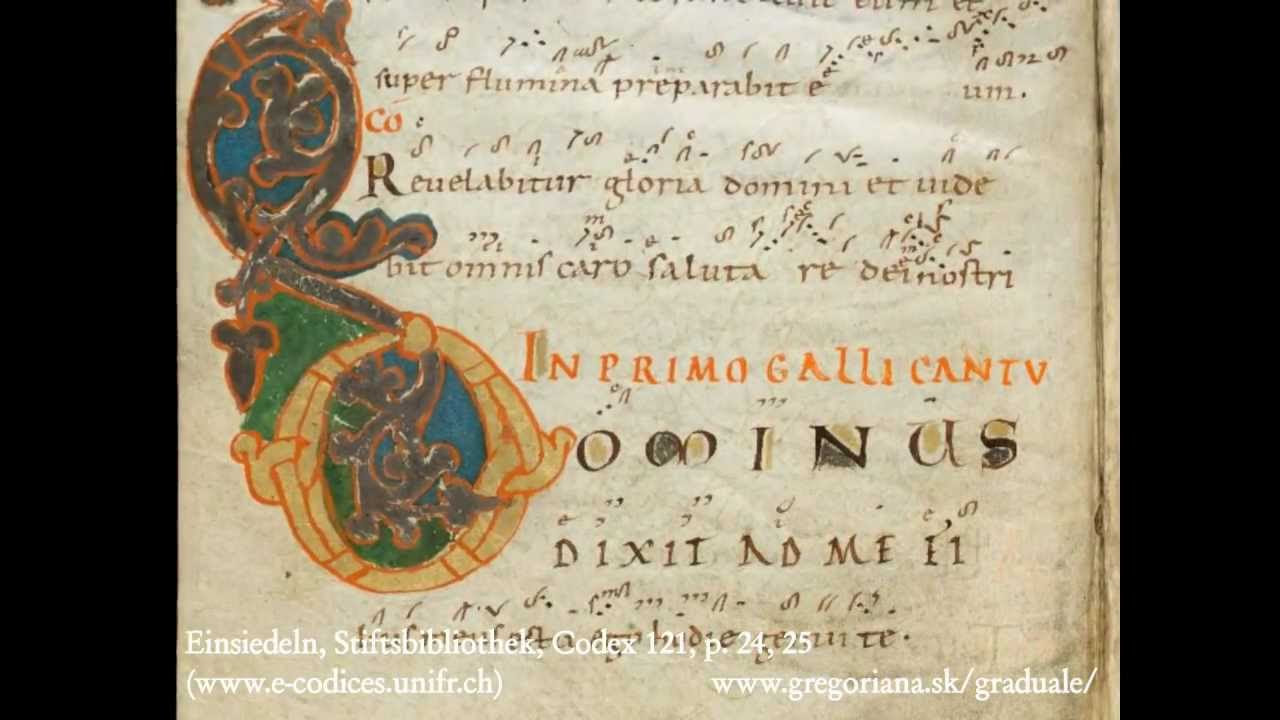 super flumina preparabit e um.
CŌ
Reuelabitur gloria domini et uide
bit omnis caro saluta re dei nostri
IN PRIMO GALLI CANTV
DOMINUS
DIXIT AD ME FI
Einsiedeln, Stiftsbibliothek, Codex 121, p. 24, 25
(www.e-codices.unifr.ch)
www.gregoriana.sk/graduale/